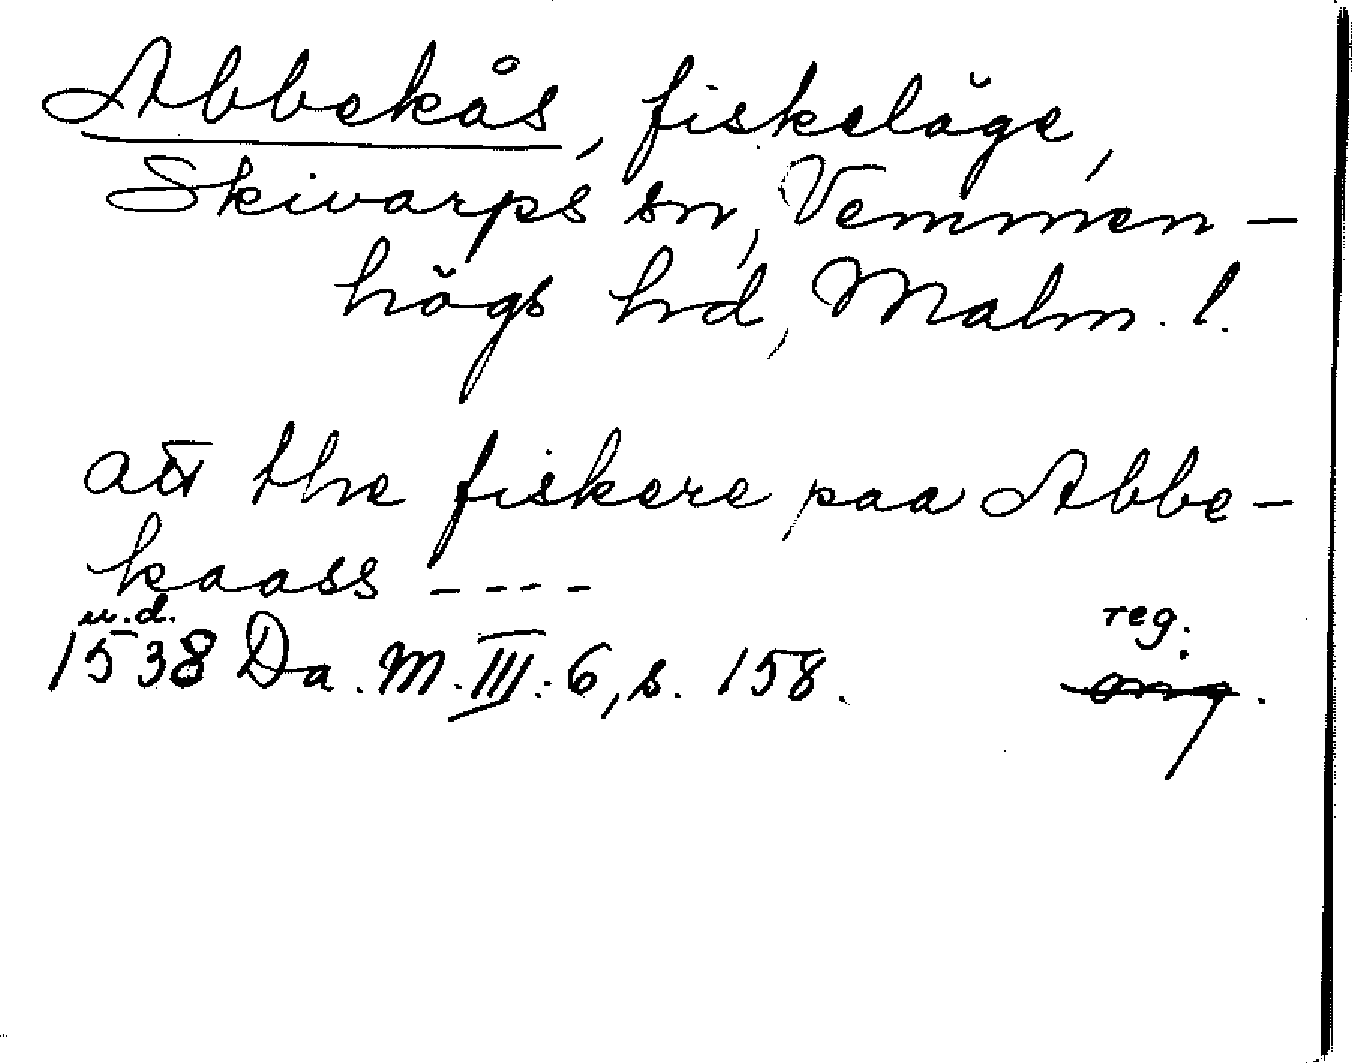 Abbekås, fiskeläge,
Skivarps sn, Vemmen-
högs hd, Malm. l.
att the fiskere paa Abbe-
kaass ----
u.d.
1538 Da. M. III: 6, s. 158.
reg.